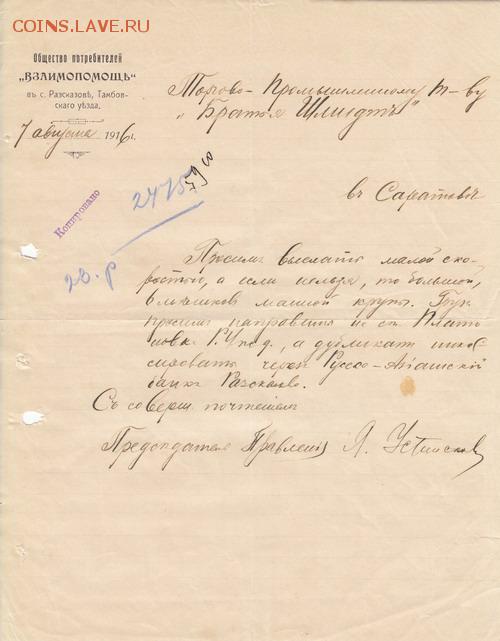 COINS.LAVE.RU
Общество потребителей
„ВЗАИМОПОМОЩЬ“
въ с. Разсказовѣ, Тамбов-
скаго уѣзда.
7 августа 1916 г.
Торгово-Промышленному Т-ву
„Братья Шмидтъ“
въ Саратовѣ
Копировано
2475
23. р
Просимъ выслать малой ско-
ростью, а если нельзя, то большой,
мѣшковъ манной крупы. Груз
просимъ направить на ст. Плато
новка Р.У.ж.д., а дубликатъ
через Русско-Азіатскій
банкъ Разсказово.
Съ соверш. почтеніем
Председатель Правленія Я. Устинсков